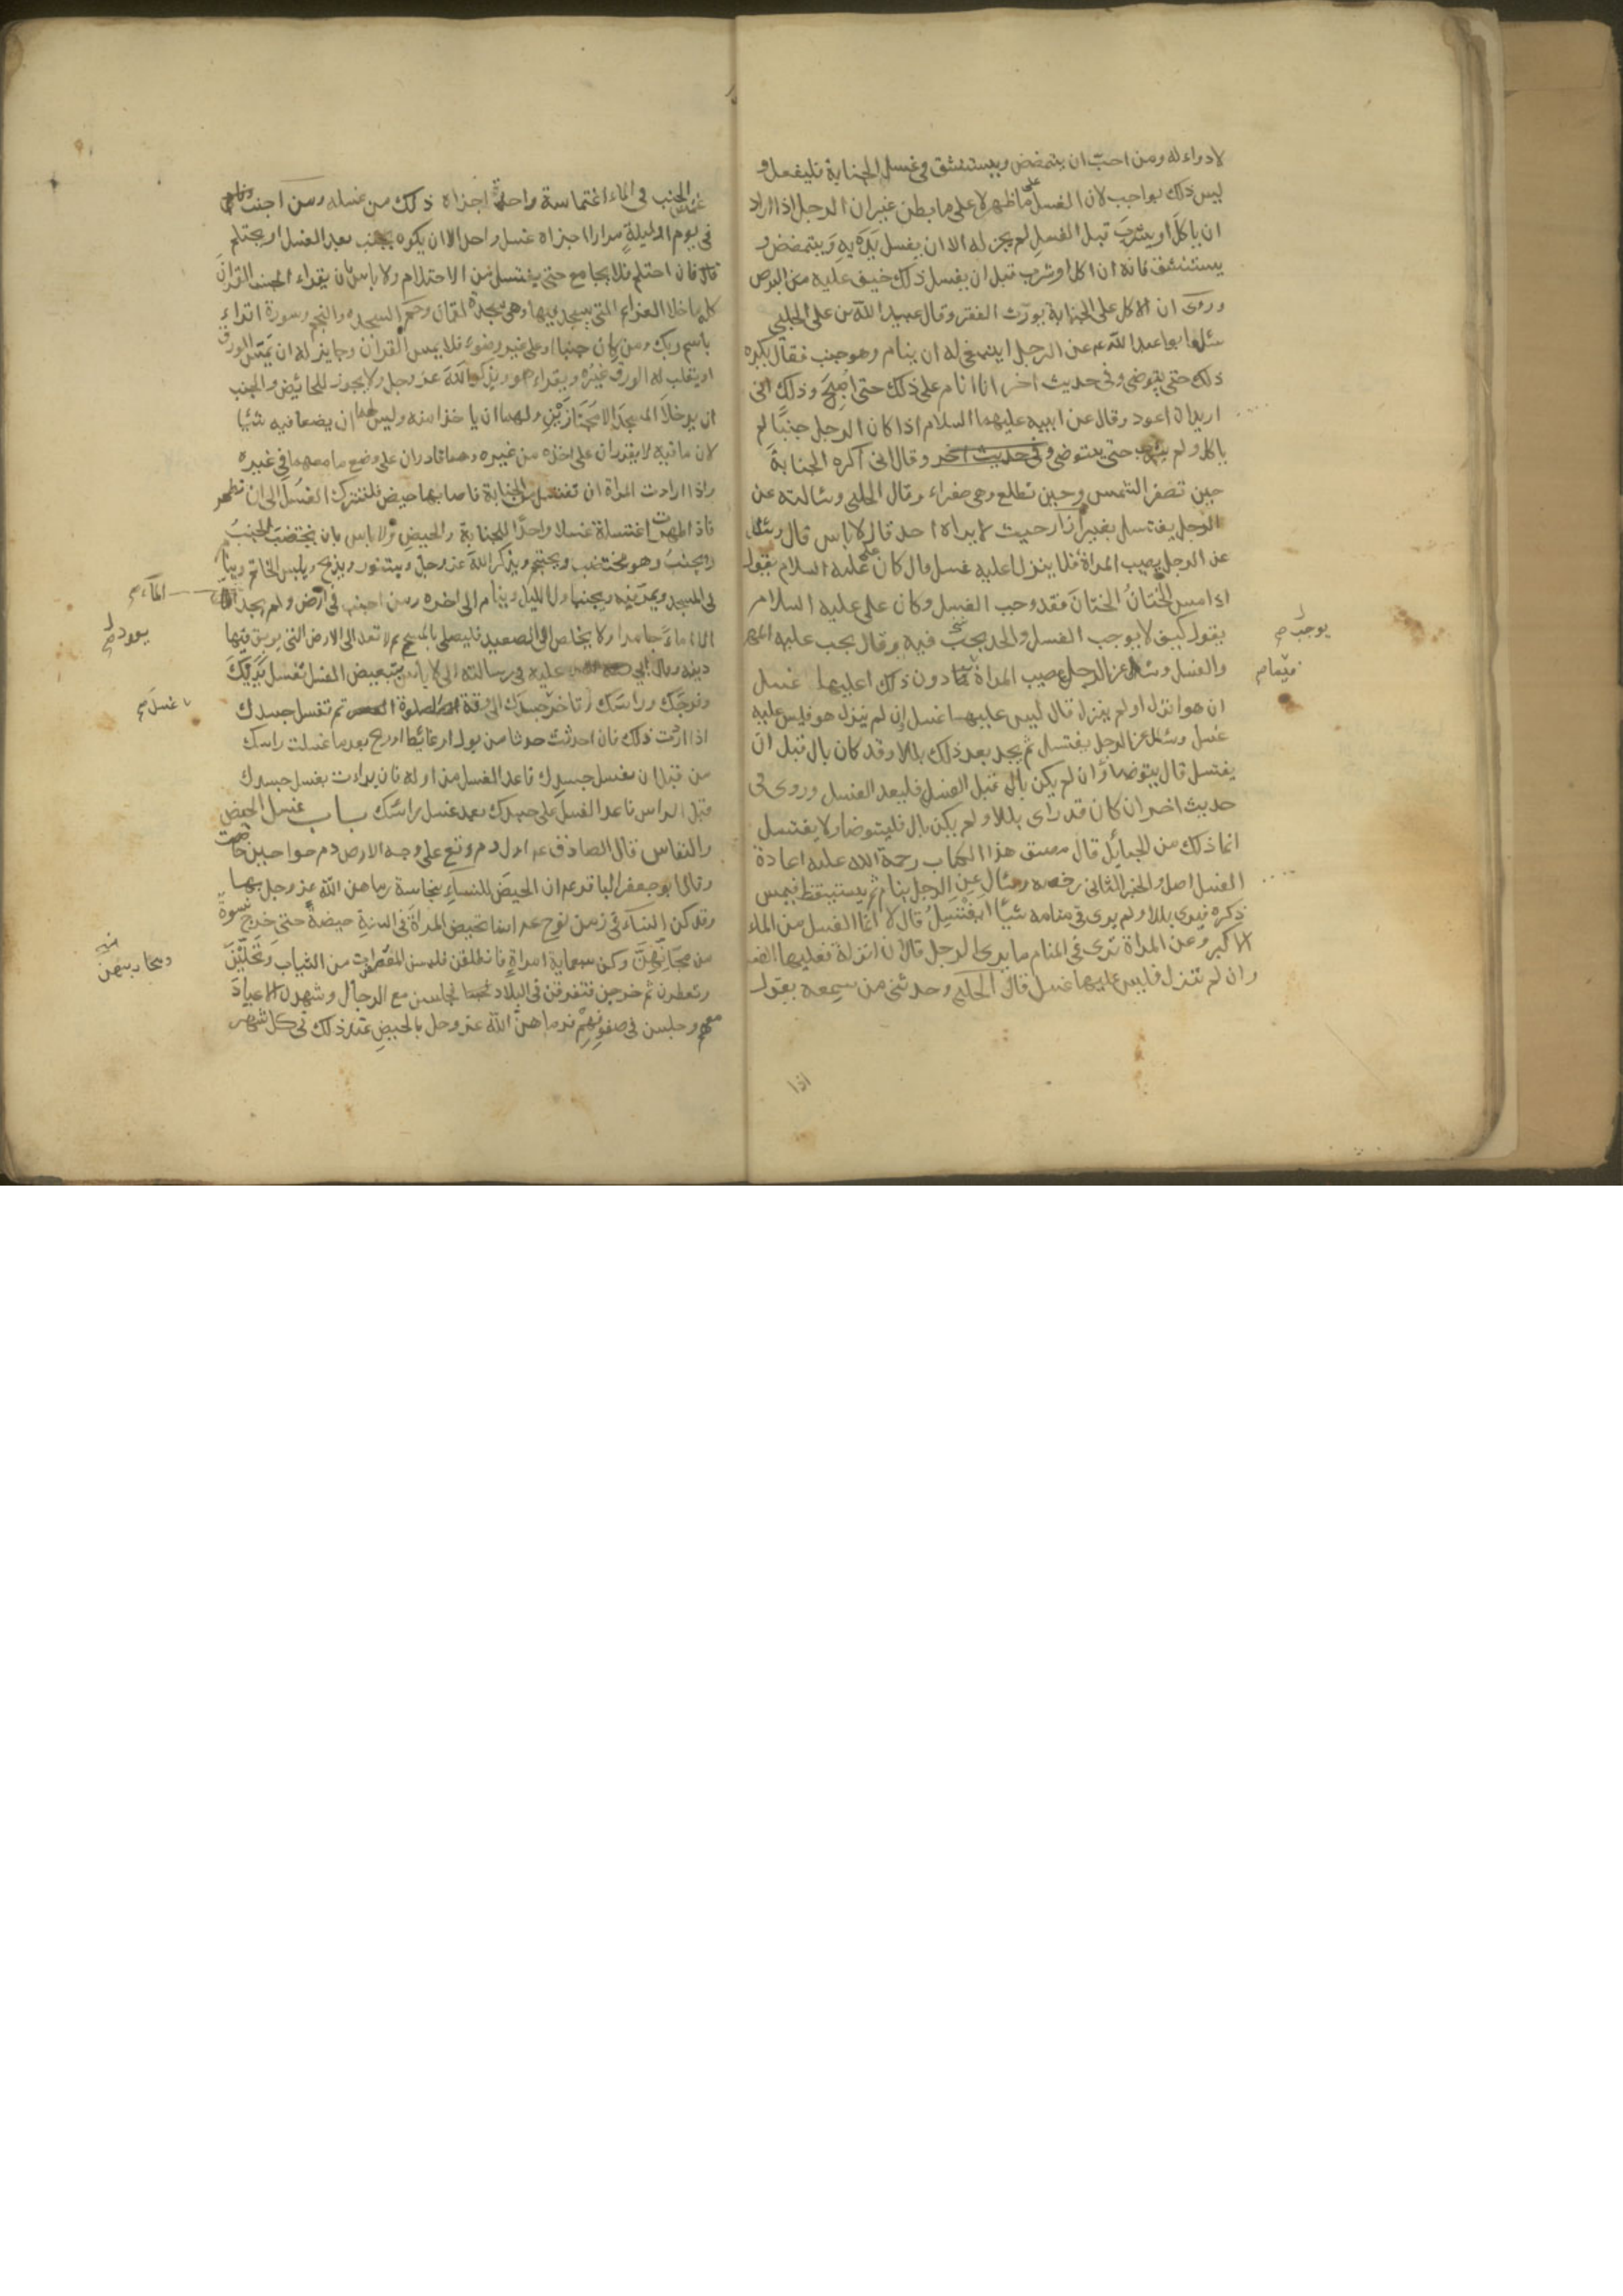 لادواء له ومن احبّ ان يتمضمض ويستنشق في غسل الجنابة فليفعل و
ليس ذلك بواجب لان الغسل على ما ظهر لا على ما بطن غير ان الرجل اذا اراد
ان ياكل او يشرب قبل الغسل لم يجز له الا ان يغسل يديه ويتمضمض و
يستنشق فانه ان اكل او شرب قبل ان يغسل ذلك خيف عليه من البرص
وروى ان الاكل على الجنابة يورث الفقر وقال عبيد الله بن على الحلبي
سئل ابو عبد الله ع عن الرجل اينبغي له ان ينام وهو جنب فقال يكره
ذلك حتى يتوضى وفى حديث اخر انا انام على ذلك حتى اصبح وذلك انى
اريد ان اعود وقال عن ابيه عليهما السلام اذا كان الرجل جنبًا لم
ياكل ولم يشرب حتى يتوضى وفى حديث اخر وقال انى اكره الجنابة
حين تصفر الشمس وحين تطلع وهى صفراء وقال الحلبى وسالته عن
الرجل يغتسل بغير ازار حيث لا يراه احد قال لا باس قال وسئل
عن الرجل يصيب المراة فلا ينزل اعليه غسل قال كان على عليه السلام يقول
اذا مس الختانُ الختانَ فقد وجب الغسل وكان على عليه السلام
يقول كيف لا يوجب الغسل والحد يجب فيه وقال يجب عليه المهر
والغسل وسئل عن الرجل يصيب المراة فيما دون ذلك اعليهما غسل
ان هو انزل او لم ينزل قال ليس عليهما غسل ان لم ينزل هو فليس عليه
غسل وسئل عن الرجل يغتسل ثم يجد بعد ذلك بللا وقد كان بال قبل ان
يغتسل قال يتوضا وان لم يكن بال قبل الغسل فليعد الغسل وروى فى
حديث اخر ان كان قد راى بللا ولم يكن بال فليتوضا ولا يغتسل
انما ذلك من الحبايل قال مصنف هذا الكتاب رحمة الله عليه اعادة
الغسل اصل والخبر الثانى رخصه وسئال عن الرجل ينام ثم يستيقظ فيمس
ذكره فيرى بللا ولم يرى في منامه شيًا ايغتسل قال لا انما الغسل من الماء
الاكبر وعن المراة ترى فى المنام ما يرى الرجل قال ان انزلت فعليها الغسل
وان لم تنزل فليس عليها غسل قال الحلبى وحدثنى من سمعه يقول
اذا
يوجب
فيما
اغتمس الجنب فى الماء اغتماسة واحدة اجزاه ذلك من غسله ومن اجنب
فى يوم او ليلةٍ مرارا اجزاه غسل واحد الا ان يكون يجنب بعد الغسل او يحتلم
قال فان احتلم فلا يجامع حتى يغتسل من الاحتلام ولا باس بان يقراء الجنب القرانَ
كله ما خلا العزائم التى يسجد فيها وهى سجدة لقمان وحم السجده والنجم وسورة اقراء
باسم ربك ومن كان جنبا او على غير وضوء فلا يمس القران وجايز له ان يمسّ الورق
او يقلب له الورق غيره ويقراء هو ويذكر الله عز وجل ولا يجوز للحائض والجنب
ان يدخلا المسجد الا مجتازَيْن ولهما ان ياخذا منه وليس لهما ان يضعا فيه شئيا
لان ما فيه لا يقدران على اخذه من غيره وهما قادران على وضع ما معهما فى غيره
واذا ارادت المراة ان تغتسل من الجنابة فاصابها حيض فلتترك الغسل الى ان تطهر
فاذا طهرت اغتسلة غسلا واحدًا للجنابة والحيض ولا باس بان يختضبَ الجنبُ
ويجنبُ وهو مختضب ويحتجم ويذكر اللهَ عز وجل ويتنور ويذبح ويلبس الخاتم وينام
فى المسجد ويمرّ فيه ويجنب اول الليل وينام الى اخره ومن اجنب فى ارض ولم يجد
الماء
الا ماءً جامدا ولا يخلص الى الصعيد فليصلى بالمسح ثم لا تعد الى الارض التى يوبق فيها
يعود
دينه وقال ابي عليه فى رسالته الى لا باس بتبعيض الغسل تغسل يديك
وفرجَك وراسَك وتاخر جسدك الى وقت الصلوة ثم تغسل جسدك
غسل
اذا اردت ذلك فان احدثت حدثا من بول او غائط او ريح بعد ما غسلت راسك
من قبل ان تغسل جسدك فاعد الغسل من اوله فان بداءت بغسل جسدك
قبل الراس فاعد الغسل على جسدك بعد غسل راسك باب غسل الحيض
والنفاس قال الصادق ع اول دم وقع على وجه الارض دم حوا حين حاضت
وقال ابو جعفر الباقر ع ان الحيض للنساء نجاسة رماهن الله عز وجل بها
وقد كن النساء فى زمن نوح ع انما تحيض المراة فى السنة حيضة حتى خرج نسوة
من مجانّهنّ وكن سبعماية امراةٍ فانطلقن فلبسن المعصفرات من الثياب وتحلّيّن
وتعطرن ثم خرجن فتفرقن فى البلاد فجلسن مع الرجال وشهدن الاعياد
معهم وجلسن فى صفوفهم فرماهنّ الله عز وجل بالحيض عند ذلك فى كل شهر